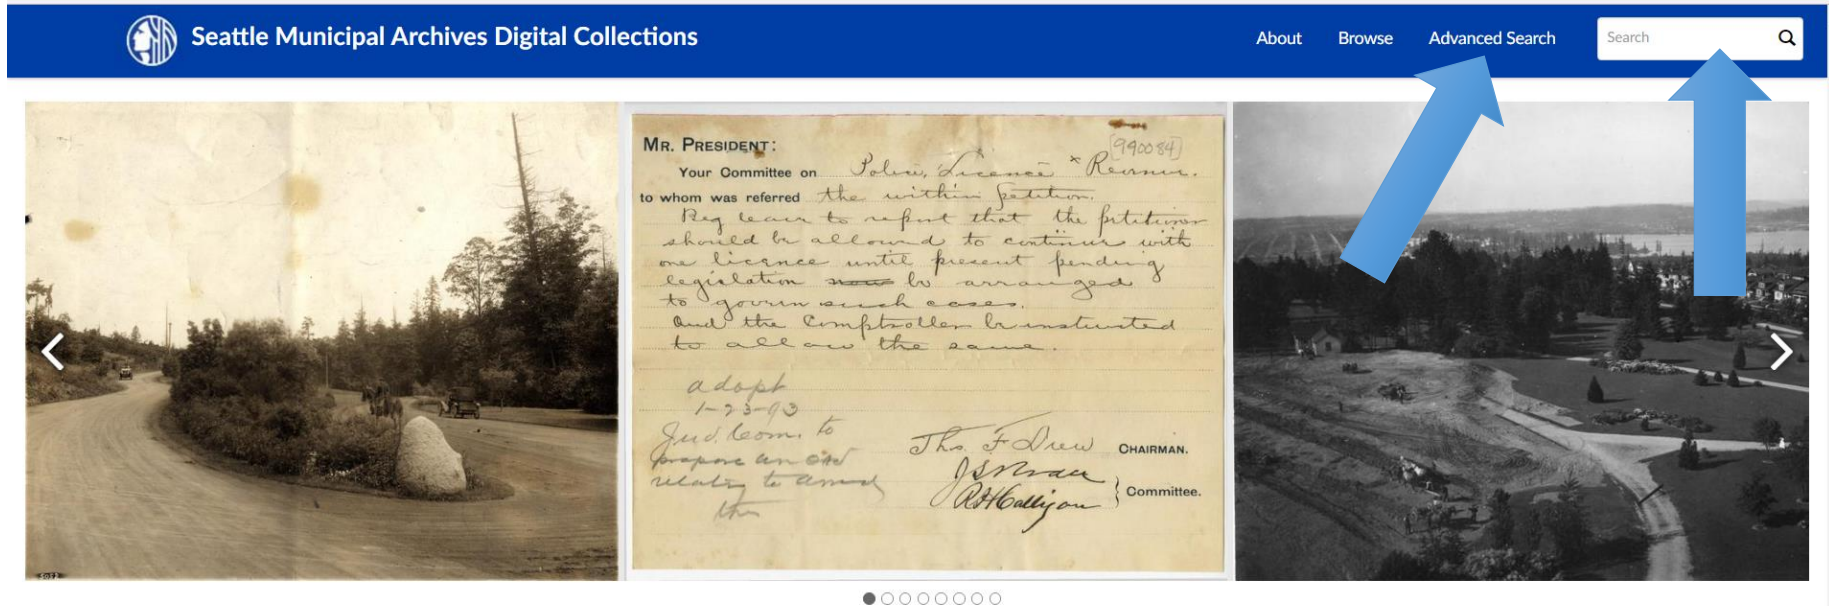 Seattle Municipal Archives Digital Collections
About Browse Advanced Search Search
MR. PRESIDENT:
[990084]
Your Committee on Police, Licence & Revenue.
to whom was referred the within petition.
Beg leave to report that the petitioner
should be allowed to continue with
one licence until present pending
legislation be arranged
to govern such cases.
And the Comptroller be instructed
to allow the same.
adopt
1-23-93
Jud. Com. to
prepare an Ord
relating to amend
Tho. F Drew CHAIRMAN.
Committee.